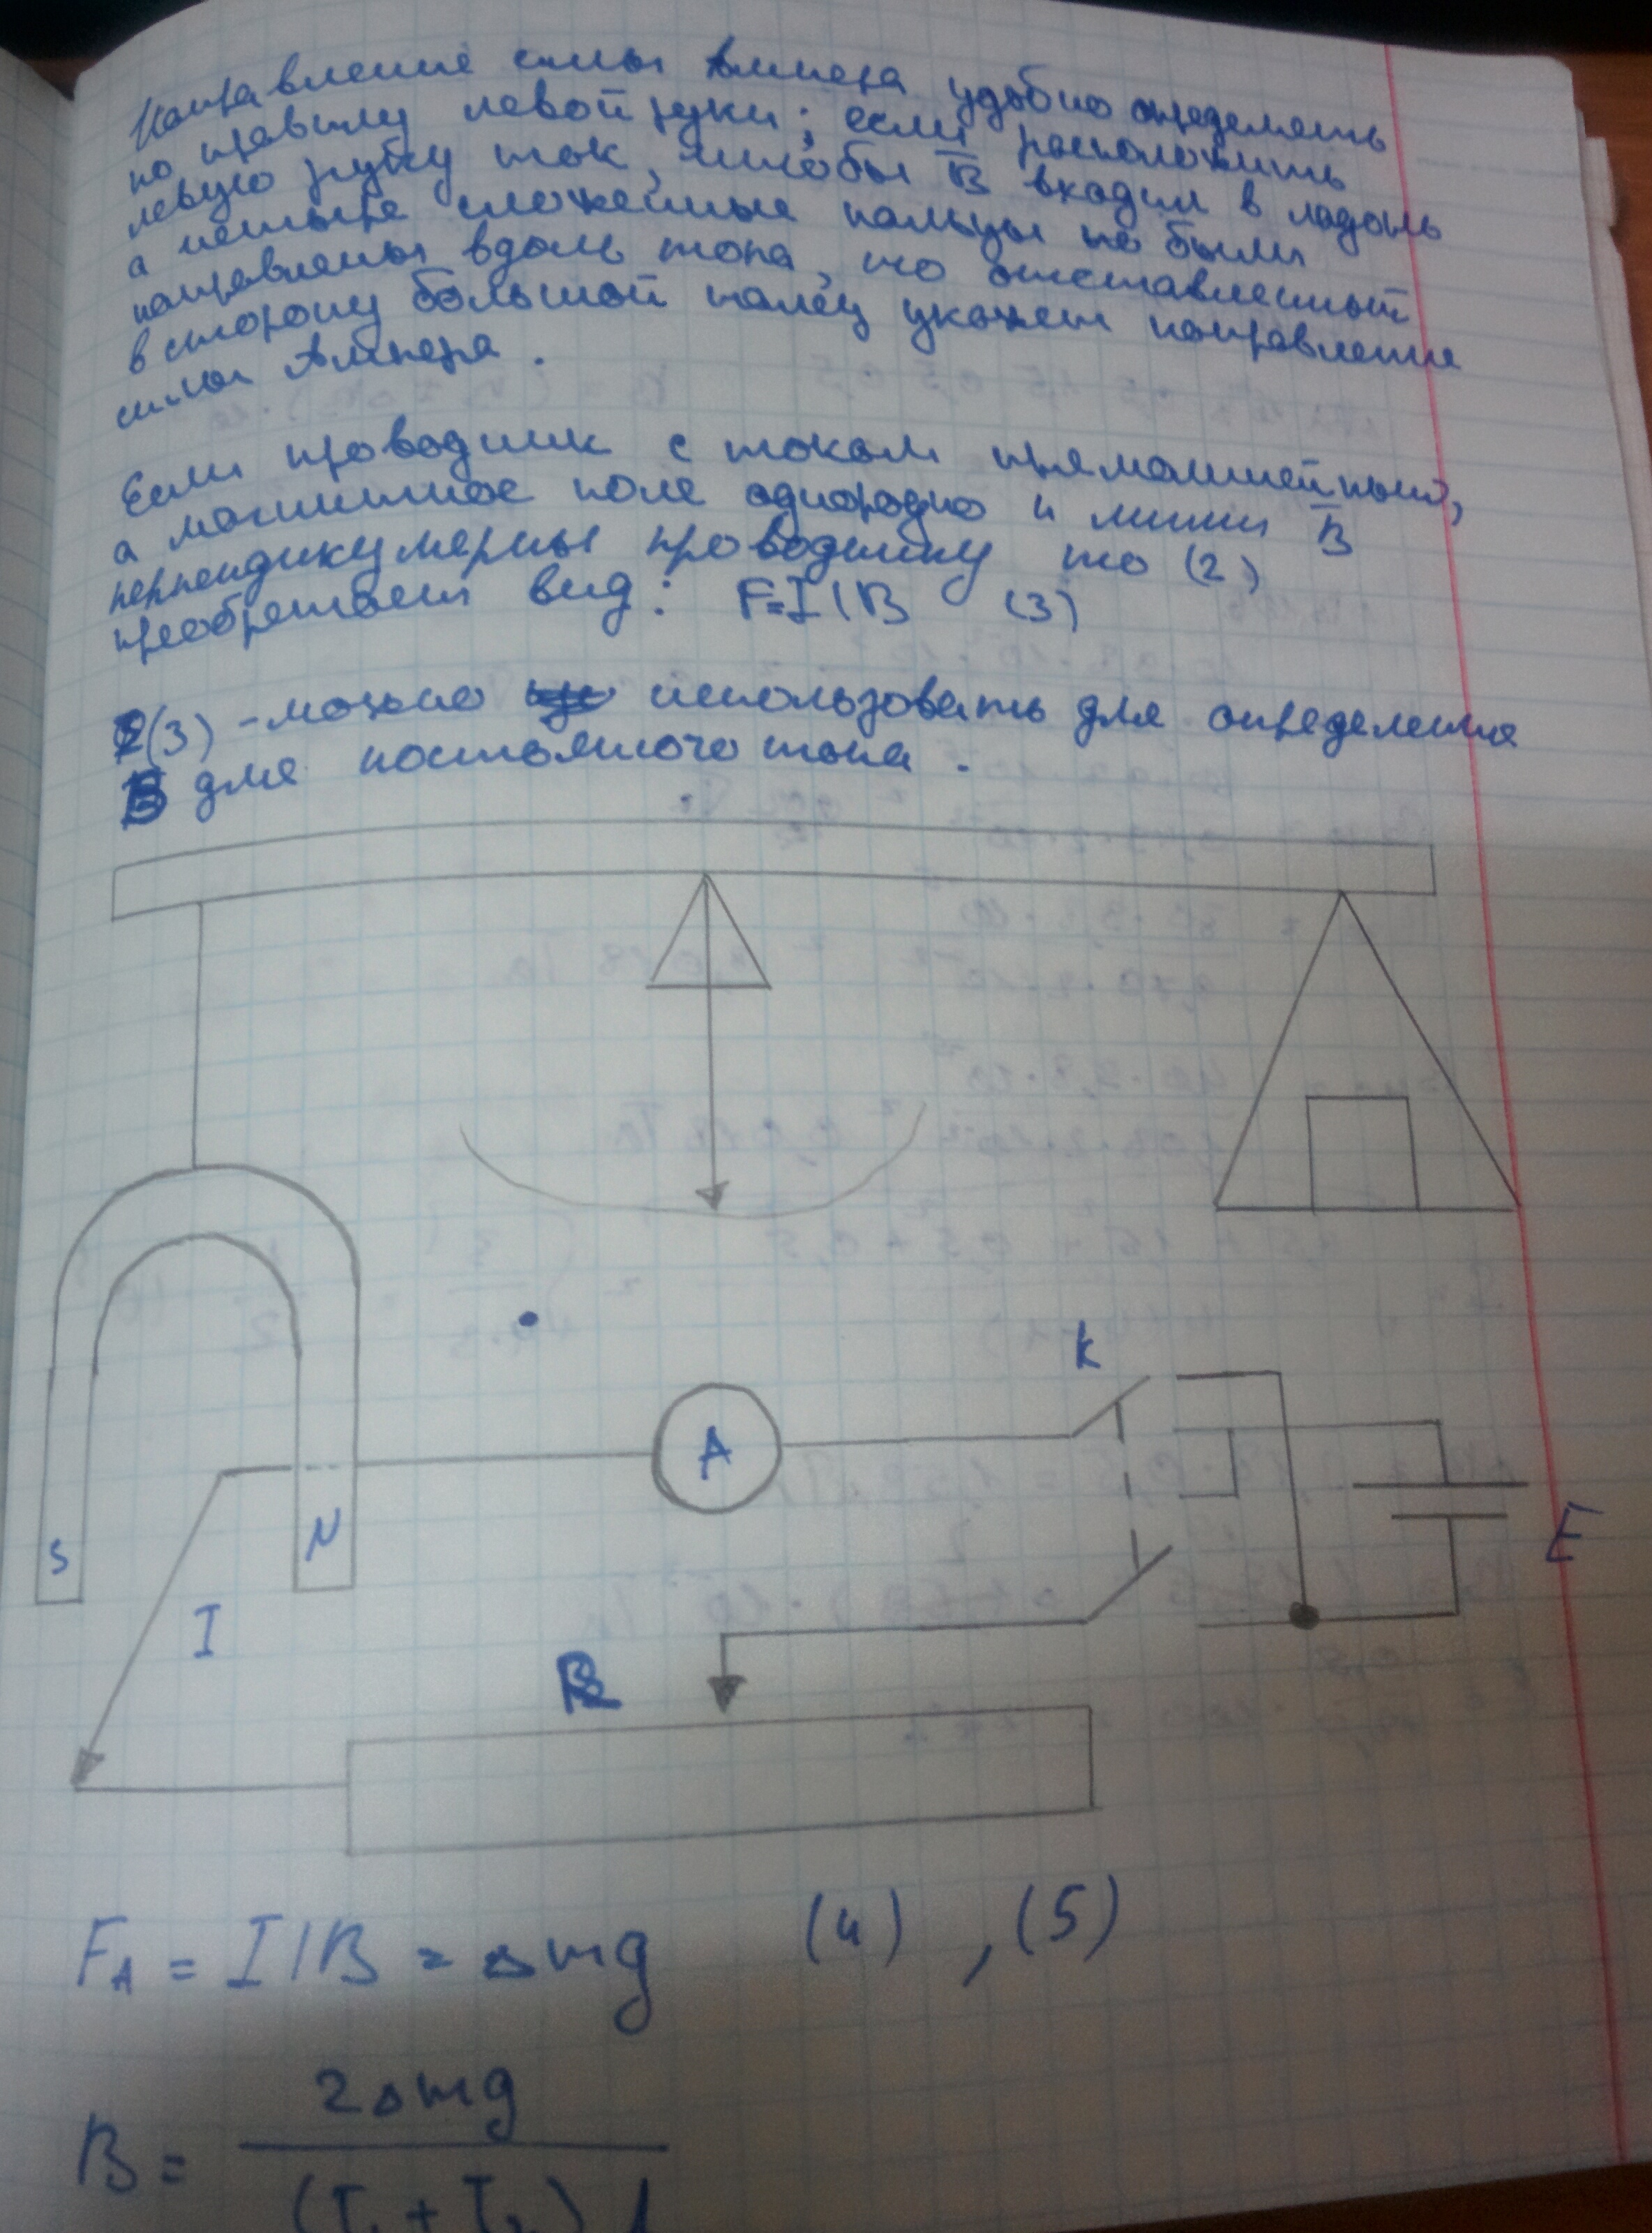 Направление силы Ампера удобно определять
по правилу левой руки; если расположить
левую руку так, чтобы B входил в ладонь
а четыре сложенные пальцы по были
направлены вдоль тока, то отставленный
в сторону большой палец укажет направление
силы Ампера.
Если проводник с током прямолинейный,
а магнитное поле однородно и линии B
перпендикулярны проводнику то (2)
преобретает вид: F=IlB (3)
(3) - можно использовать для определения
B для постоянного тока.
K
A
S
N
E
I
R
F_A = IlB = Δmg (4), (5)
B = 2Δmg
(I₁ + I₂) l